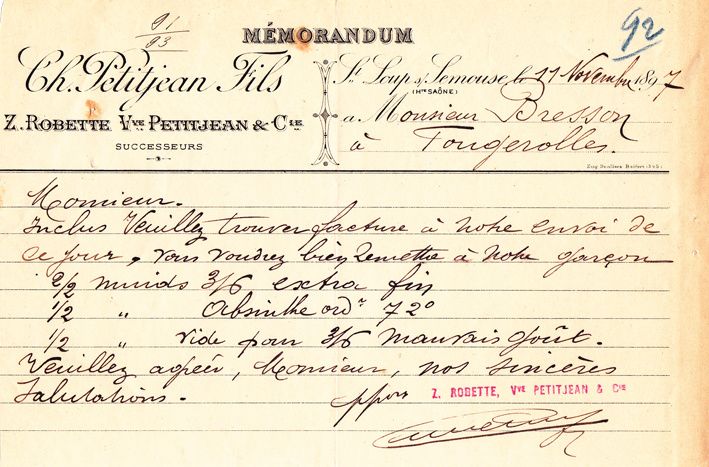 91
93
92
MÉMORANDUM
Ch. Petitjean Fils
Z. ROBETTE Vve PETITJEAN & Cie
SUCCESSEURS
St Loup s/ Semouse, le 11 Novembre 1897
(Hte SAÔNE)
a Monsieur Bresson
à Fougerolles.
Monsieur.
Inclus Veuillez trouver facture à notre envoi de
ce jour, vous voudrez bien remettre à notre garçon
2/2 muids 3/6 extra fin
1/2 " Absinthe ordre 72°
1/2 " vide pour 3/6 mauvais goût.
Veuillez agréer, Monsieur, nos sincères
salutations.
ppon Z. ROBETTE, Vve PETITJEAN & Cie